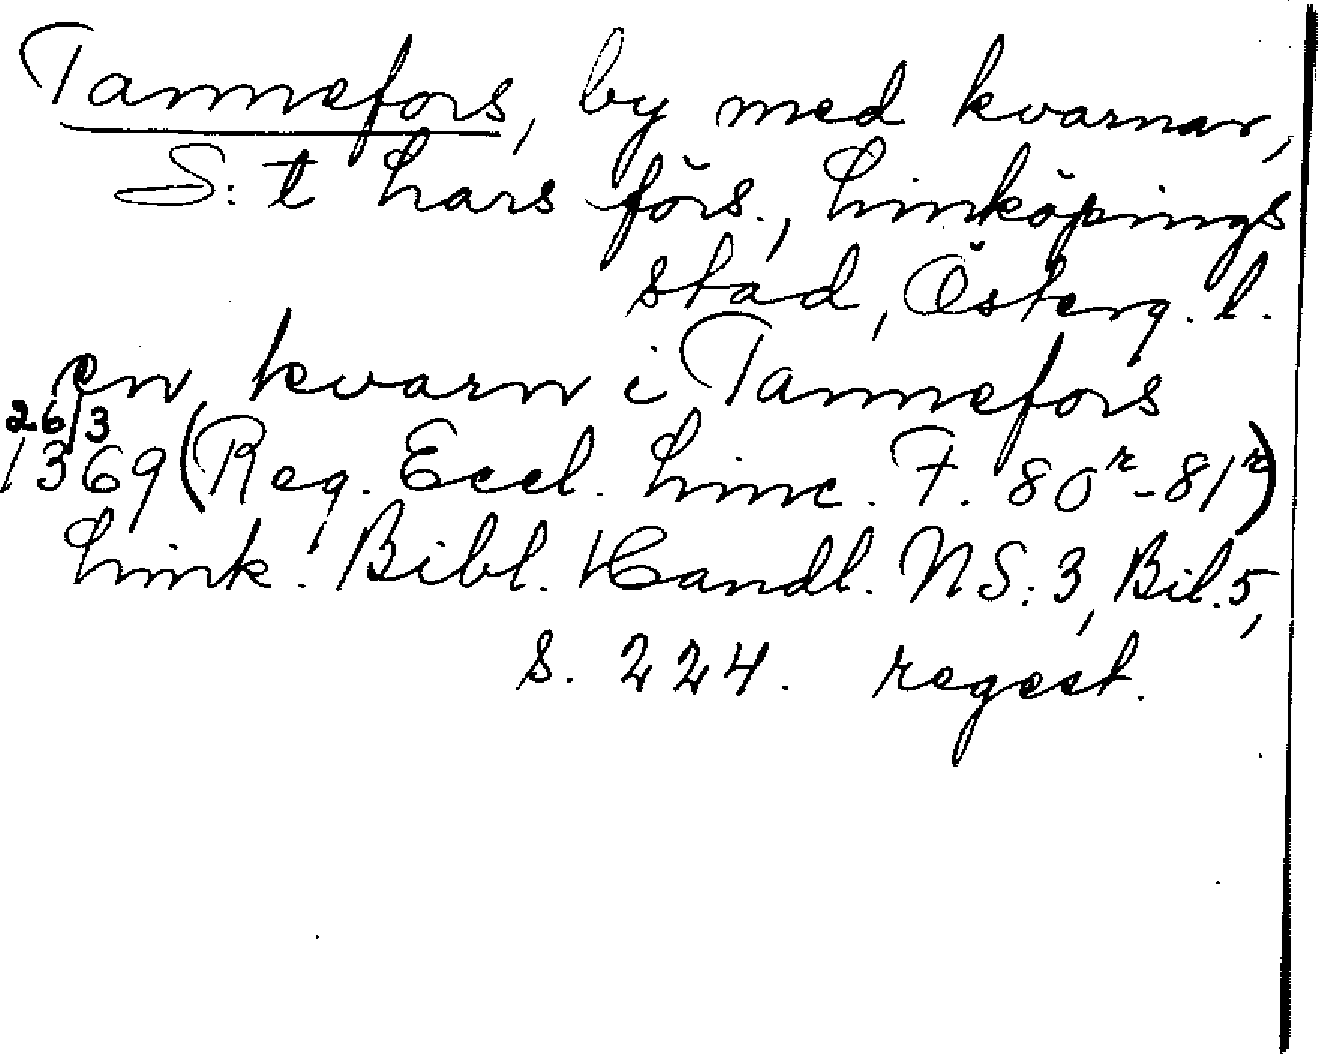 Tannefors, by med kvarnar,
S:t Lars förs., Linköpings
stad, Österg. l.
en kvarn i Tannefors
26/3
1369 (Reg. Eccl. Linc. F. 80r-81r)
Link. Bibl. Handl. NS: 3, Bil. 5,
s. 224. regest.